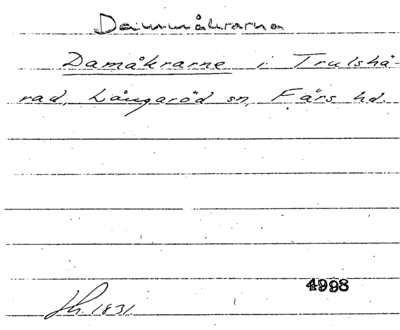 Dammåkrarna
Damåkrarne i Trulshä-
rad, Långaröd sn, Färs hd.
4998
Lh. 1831.